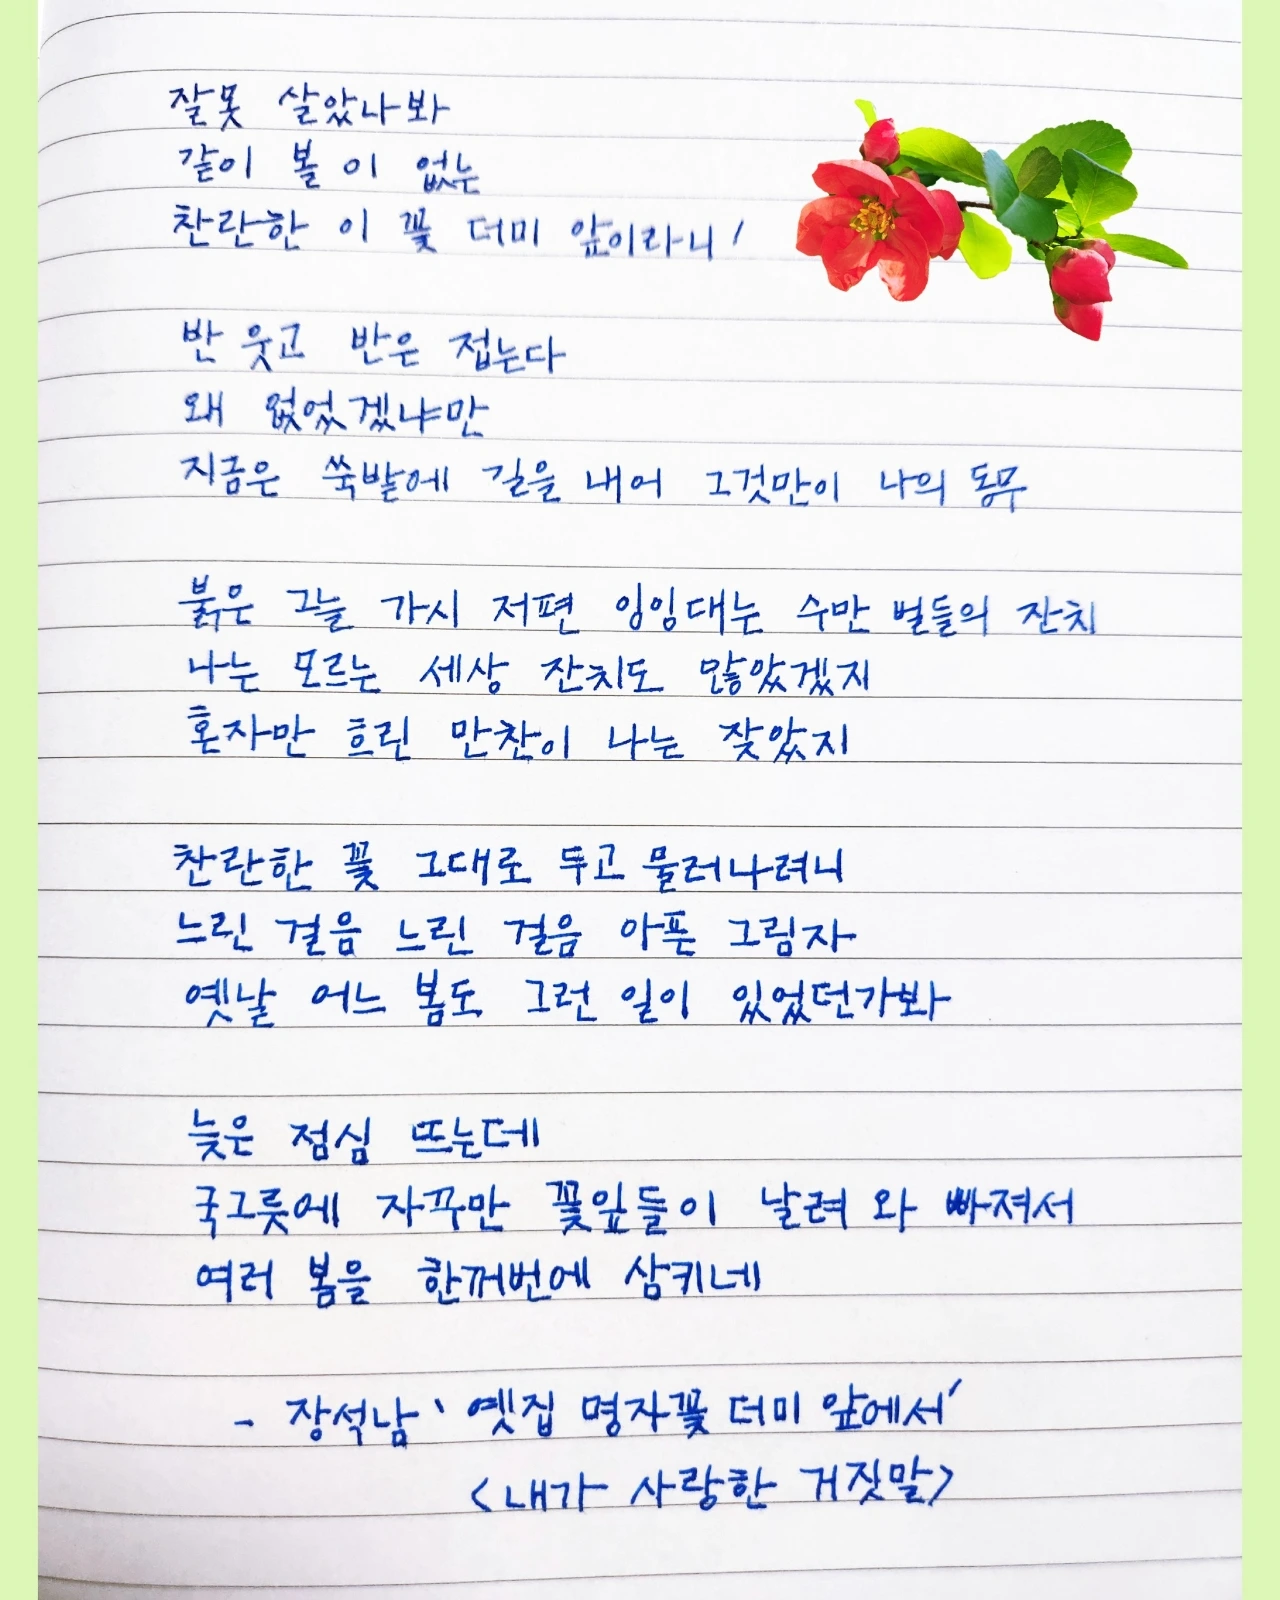 잘못 살았나봐
같이 볼 이 없는
찬란한 이 꽃 더미 앞이라니!
반 웃고 반은 접는다
왜 없었겠냐만
지금은 쑥밭에 길을 내어 그것만이 나의 동무
붉은 그늘 가시 저편 잉잉대는 수만 벌들의 잔치
나는 모르는 세상 잔치도 많았겠지
혼자만 흐린 만찬이 나는 잦았지
찬란한 꽃 그대로 두고 물러나려니
느린 걸음 느린 걸음 아픈 그림자
옛날 어느 봄도 그런 일이 있었던가봐
늦은 점심 뜨는데
국그릇에 자꾸만 꽃잎들이 날려 와 빠져서
여러 봄을 한꺼번에 삼키네
- 장석남 '옛집 명자꽃 더미 앞에서'
<내가 사랑한 거짓말>